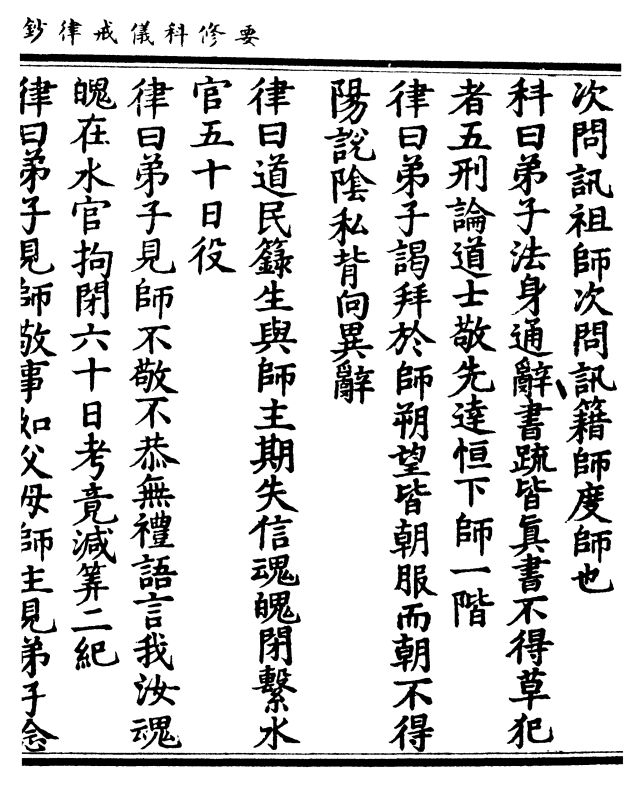 要修科儀戒律鈔
次問訊祖師次問訊籍師度師也
科曰弟子法身通辭書疏皆真書不得草犯
者五刑論道士敬先達恒下師一階
律曰弟子謁拜於師朔望皆朝服而朝不得
陽說陰私背向異辭
律曰道民籙生與師主期失信魂魄閉繫水
官五十日役
律曰弟子見師不敬不恭無禮語言我汝魂
魄在水官拘閉六十日考竟減筭二紀
律曰弟子見師敬事如父母師主見弟子念